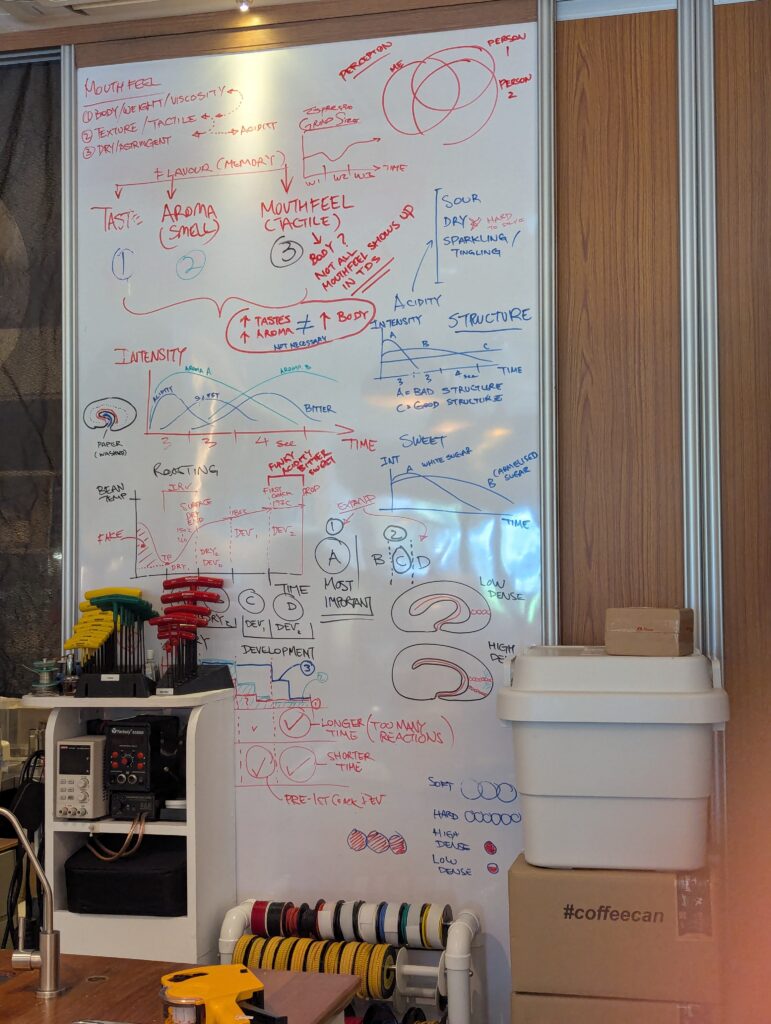 MOUTHFEEL
① BODY/WEIGHT/VISCOSITY
② TEXTURE/TACTILE
③ DRY/ASTRINGENT
ACIDITY
ESPRESSO
GRIND SIZE
W1 W2 W3
TIME
PERCEPTION
ME
PERSON 1
PERSON 2
FLAVOUR (MEMORY)
TASTE
AROMA (SMELL)
MOUTHFEEL (TACTILE)
① ② ③
BODY?
NOT ALL
MOUTHFEEL SHOWS UP
IN TDS
SOUR
DRY HARD TO
SPARKLING/
TINGLING
ACIDITY
↑ TASTES ≠ ↑ BODY
↑ AROMA
NOT NECESSARY
INTENSITY
STRUCTURE
A B C
TIME
3 3 4 sec
A = BAD STRUCTURE
C = GOOD STRUCTURE
INTENSITY
AROMA A
AROMA B
ACIDITY
SWEET
BITTER
3 3 4 sec
TIME
PAPER
(WASHED)
SWEET
INT
A WHITE SUGAR
B CARMELISED SUGAR
TIME
ROASTING
FUNKY
ACIDITY
BITTER
SWEET
BEAN
TEMP
SURFACE
DRY
END
FIRST
CRACK
DROP
FAKE
TP
DRY₁
DRY₂
DEV₁
DEV₂
TIME
EXPAND
① ②
A
B C D
MOST
IMPORTANT
LOW
DENSE
HIGH
DRY₂
C
DEV₁
D
DEV₂
DEVELOPMENT
③
②
①
LONGER
TIME (TOO MANY
REACTIONS)
SHORTER
TIME
PRE-1ST CRACK DEV
SOFT
HARD
HIGH
DENSE
LOW
DENSE
#coffeecan